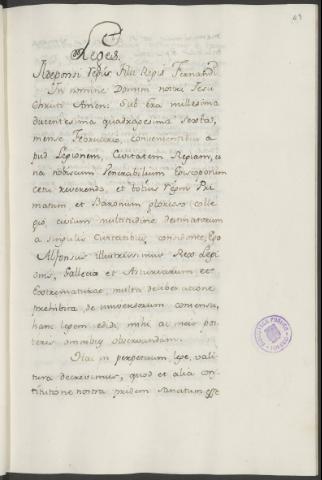 43
Reges.
Ildeponsi regis filii Regis Fernandi
In nomine Domini nostri Jesu
Christi Amen: Sub Era millesima
ducentesima quadragesima sextas,
mense Februario, convenientibus a
pud Legionem, Civitatem Regiam, u
na nobiscum Venerabilium Episcoporum
cetu reverendo, et totius regni Pri
matum et Baronum glorioso colle
gio, civium multitudine destinatorum
a singulis Civitatibus considente, Ego
Alfonsus illustrissimus Rex Legi
onis, Galleciæ et Asturiarum et
Extrematuræ, multa deliberatione
prehibita, de universorum consensu,
hanc legem edidi, mihi ac meis pos
teris omnibus observandam.
in perpetuum lege, vali
tura decrevimus, quod et alia con
stitutione nostra pridem sancitum esse
BIBLIOTECA PUBLICA
TOLEDO